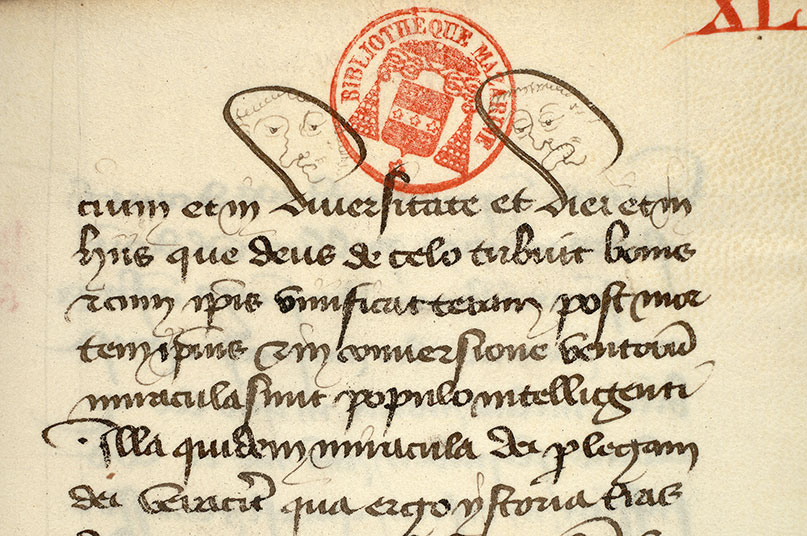 XL
BIBLIOTHÈQUE MAZARINE
cium et in diversitate et diei et in
hiis que deus de celo tribuit bonis
⁊ cum ip̄is vivificat terram post mor
tem ip̄ius ⁊ in conversione ventorū
miracula sunt populo intelligenti
Illa quidem miracula dei ꝑlegam
dei veracit̄ qua ergo ystoria